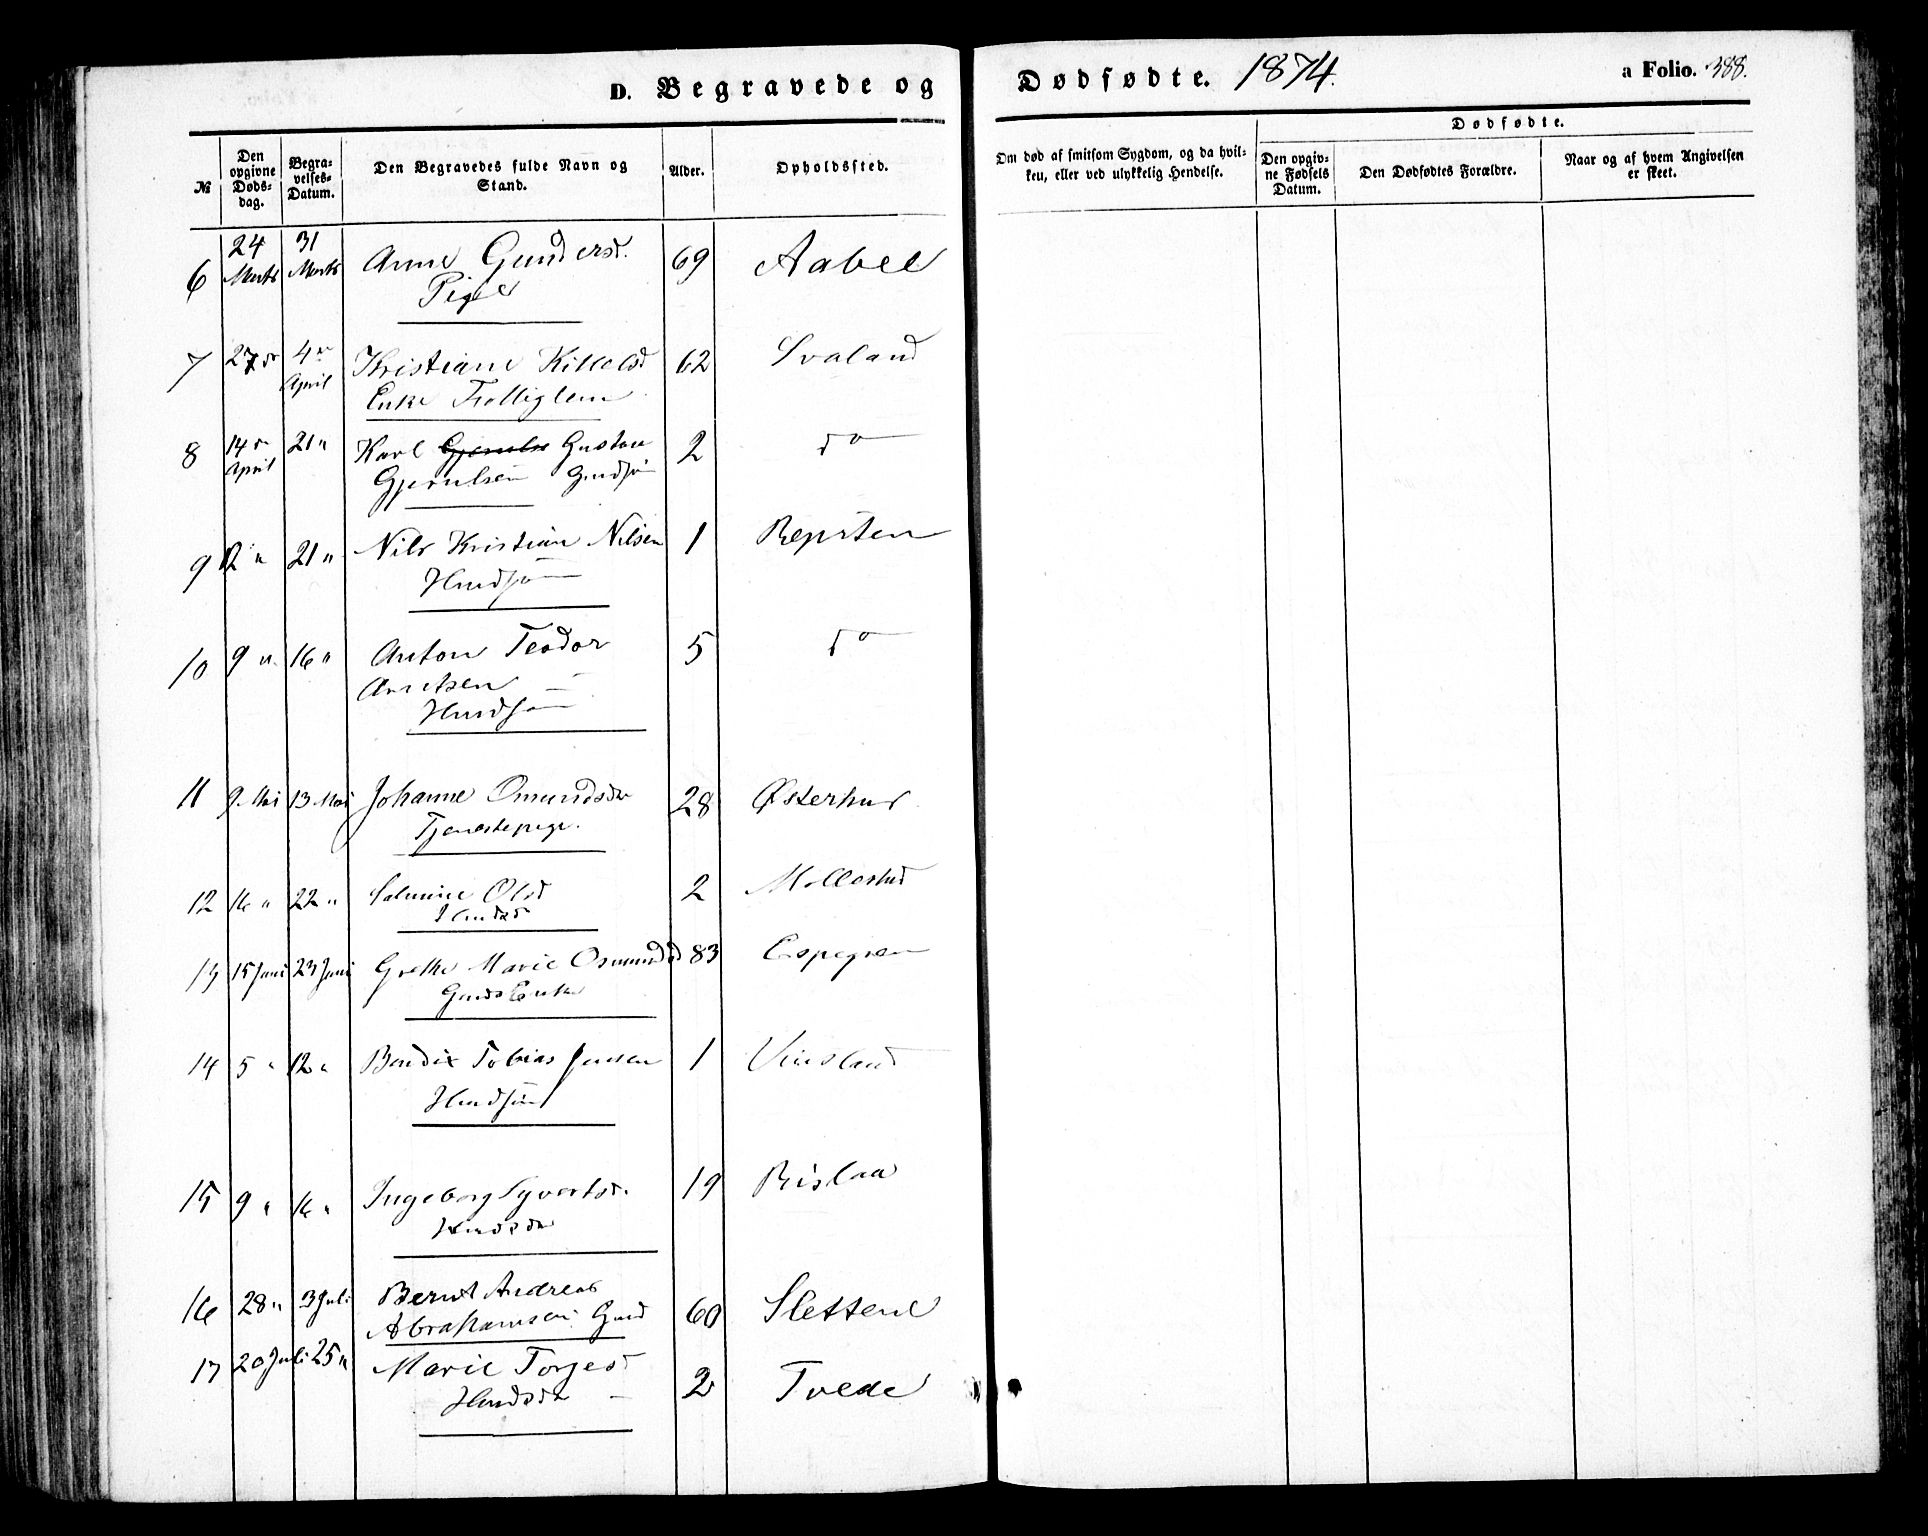 D. Begravede og Dødfødte. 1874. a Folio. 388.
№
Den opgivne Døds-dag.
Begra-velses-Datum.
Den Begravedes fulde Navn og Stand.
Alder.
Opholdssted.
Om død af smitsom Sygdom, og da hvil-ken, eller ved ulykkelig Hendelse.
Dødfødte.
Den opgiv-ne Fødsels Datum.
Den Dødfødtes Forældre.
Naar og af hvem Angivelsen er skeet.
6 24 Marts 31 Marts Anne Gundersd. 69 Aabel
Pige
7 27 4 April Kristiane Killelsd 62 Svaland
Enke Fattiglem
8 14 April 21 " Karl Gustav 2 do
Gjerulsen Grdsøn
9 12 " 21 " Nils Kristian Nilsen 1 Repsten
Husdsøn
10 9 " 16 " Anton Teodor 5 do
Arntsen
Husdsøn
11 9 Mai 13 Mai Johanne Omundsdr 28 Østerhus
Tjenestepige.
12 16 " 22 " Salmine Olsd 2 Mollestad
Husdsd
13 15 Juni 23 Juni Grethe Marie Osmundsd 83 Espegren
Grds Enke
14 5 " 12 " Bendix Tobias Jensen 1 Vinsland
Husdsøn
15 9 " 16 " Ingeborg Syvertsd. 19 Rislaa
Husdsdr
16 28 " 3 Juli Bernt Andreas
Abrahamsen Grd 60 Slettene
17 20 Juli 25 " Marie Torjesd 2 Tvede
Husdsdr